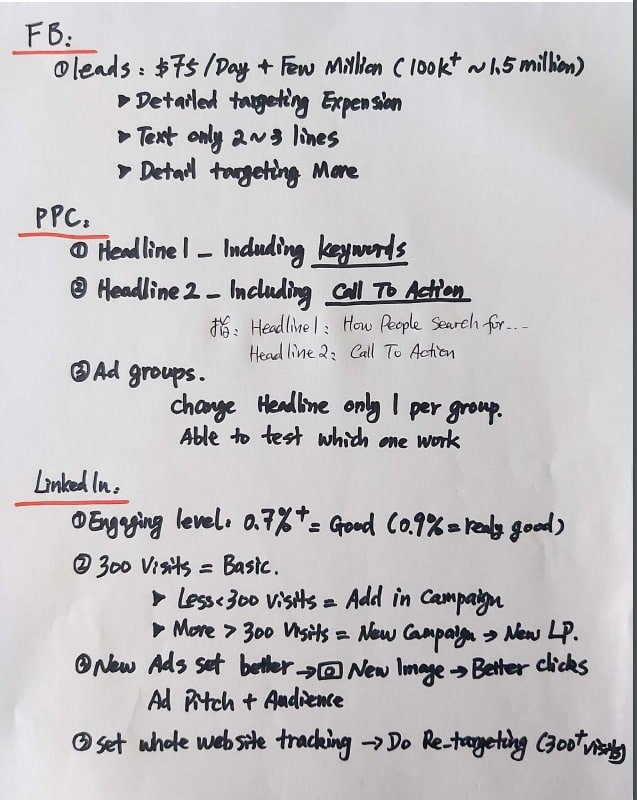 FB:
① leads : $75/Day + Few Million (100k+ ~ 1.5 million)
➤ Detailed targeting Expension
➤ Text only 2~3 lines
➤ Detail targeting More
PPC:
① Headline 1 – Including keywords
② Headline 2 – Including Call To Action
指: Headline 1: How People Search for...
Headline 2: Call To Action
③ Ad groups.
change Headline only 1 per group.
Able to test which one work
LinkedIn:
① Engaging level: 0.7%+ = Good (0.9% = realy good)
② 300 Visits = Basic.
➤ Less < 300 visits = Add in Campaign
➤ More > 300 Visits = New Campaign → New LP.
③ New Ads set better → New Image → Better clicks
Ad Pitch + Audience
③ set whole website tracking → Do Re-targeting (300+ visits)